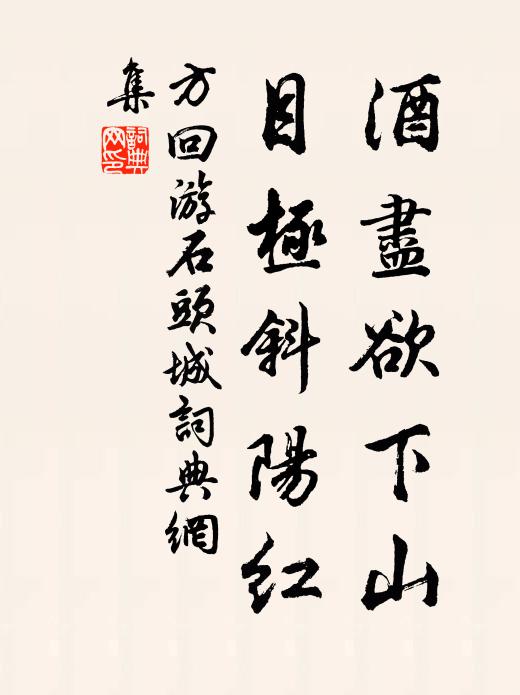 酒盡欲下山
目極斜陽紅
方回游石頭城詞典網
集
詞典
网印